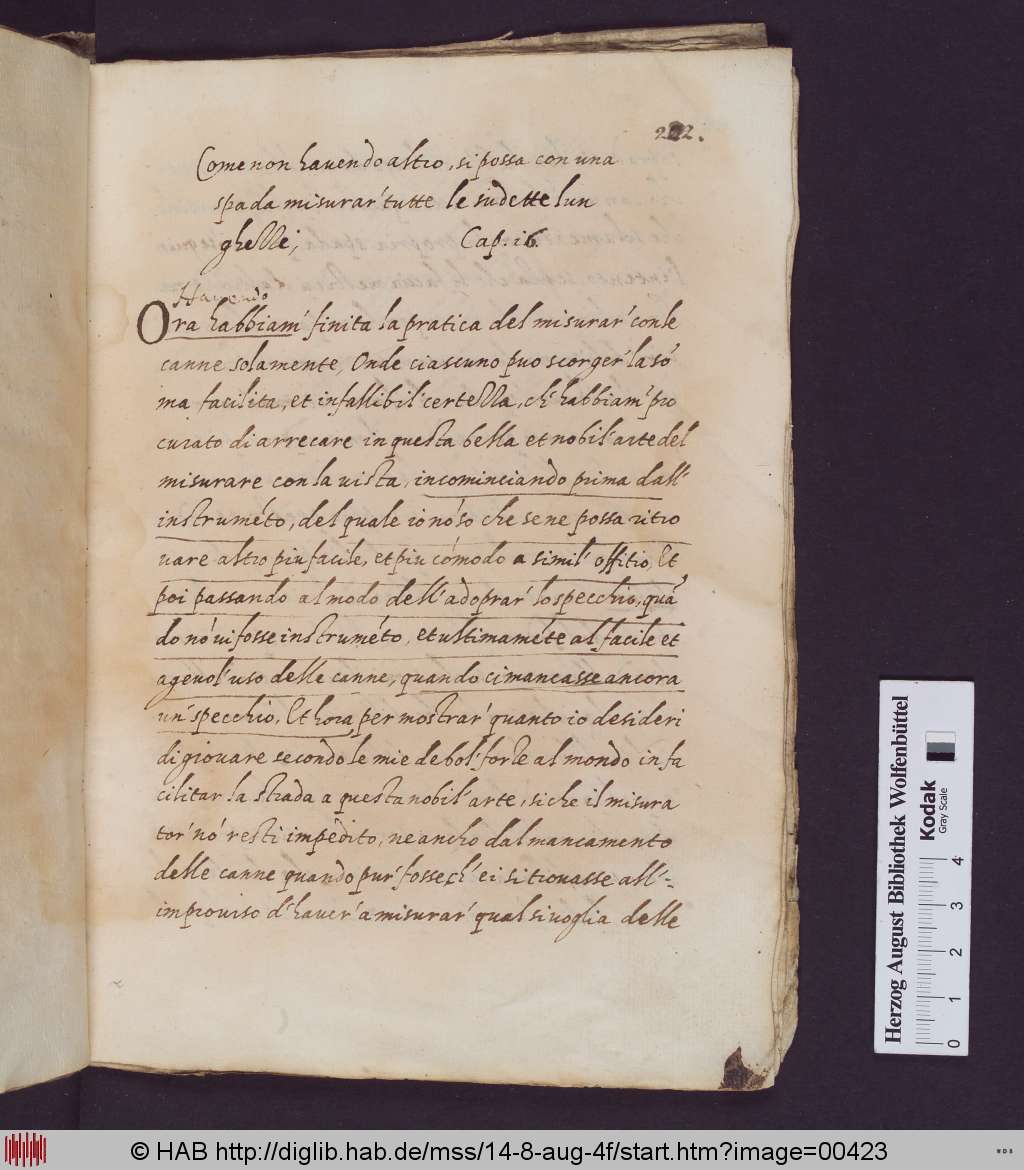 212.
Come non havendo altro, si possa con una
spada misurar' tutte le sudette lun
ghezze; Cap. 16.
Havendo
Ora habbiam' finita la pratica del misurar' con le
canne solamente, Onde ciascuno puo scorger' la só
ma facilita, et infallibil' certezza, ch' habbiam' pro
curato di arrecare in questa bella et nobil' arte del
misurare con la vista, incominciando prima dall'
instruméto, del quale io nó so che se ne possa ritro
vare altro piu facile, et piu cómodo a simil' offitio, Et
poi passando al modo dell' adoprar' lo specchio, quá
do nó vi fosse instruméto, et ultimaméte al facile et
agevol' uso delle canne, quando ci mancasse ancora
un' specchio, Et hora per mostrar' quanto io desideri
di giovare secondo le mie debol' forze al mondo in fa
cilitar la strada a questa nobil' arte, si che il misura
tor' nó resti impedito, ne ancho dal mancamento
delle canne quando pur' fosse, ch' ei si trovasse all'-
improviso d' haver' a misurar' qual si voglia delle
Herzog August Bibliothek Wolfenbüttel
Kodak
Gray Scale
0 1 2 3 4
© HAB http://diglib.hab.de/mss/14-8-aug-4f/start.htm?image=00423